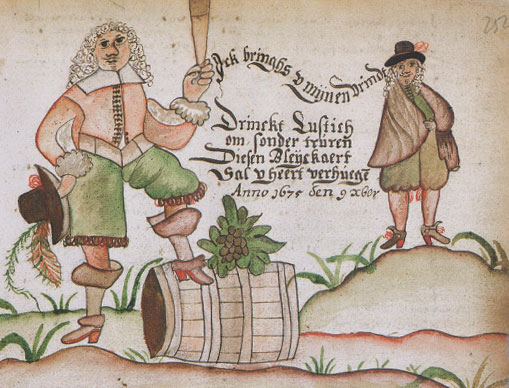 Ick bringhs v mijnen vrindt
Drinckt Lustich
om sonder trüren
Diesen Bleÿckaert
Sal v heert verhüegt
Anno 1675 den 9 xber
252